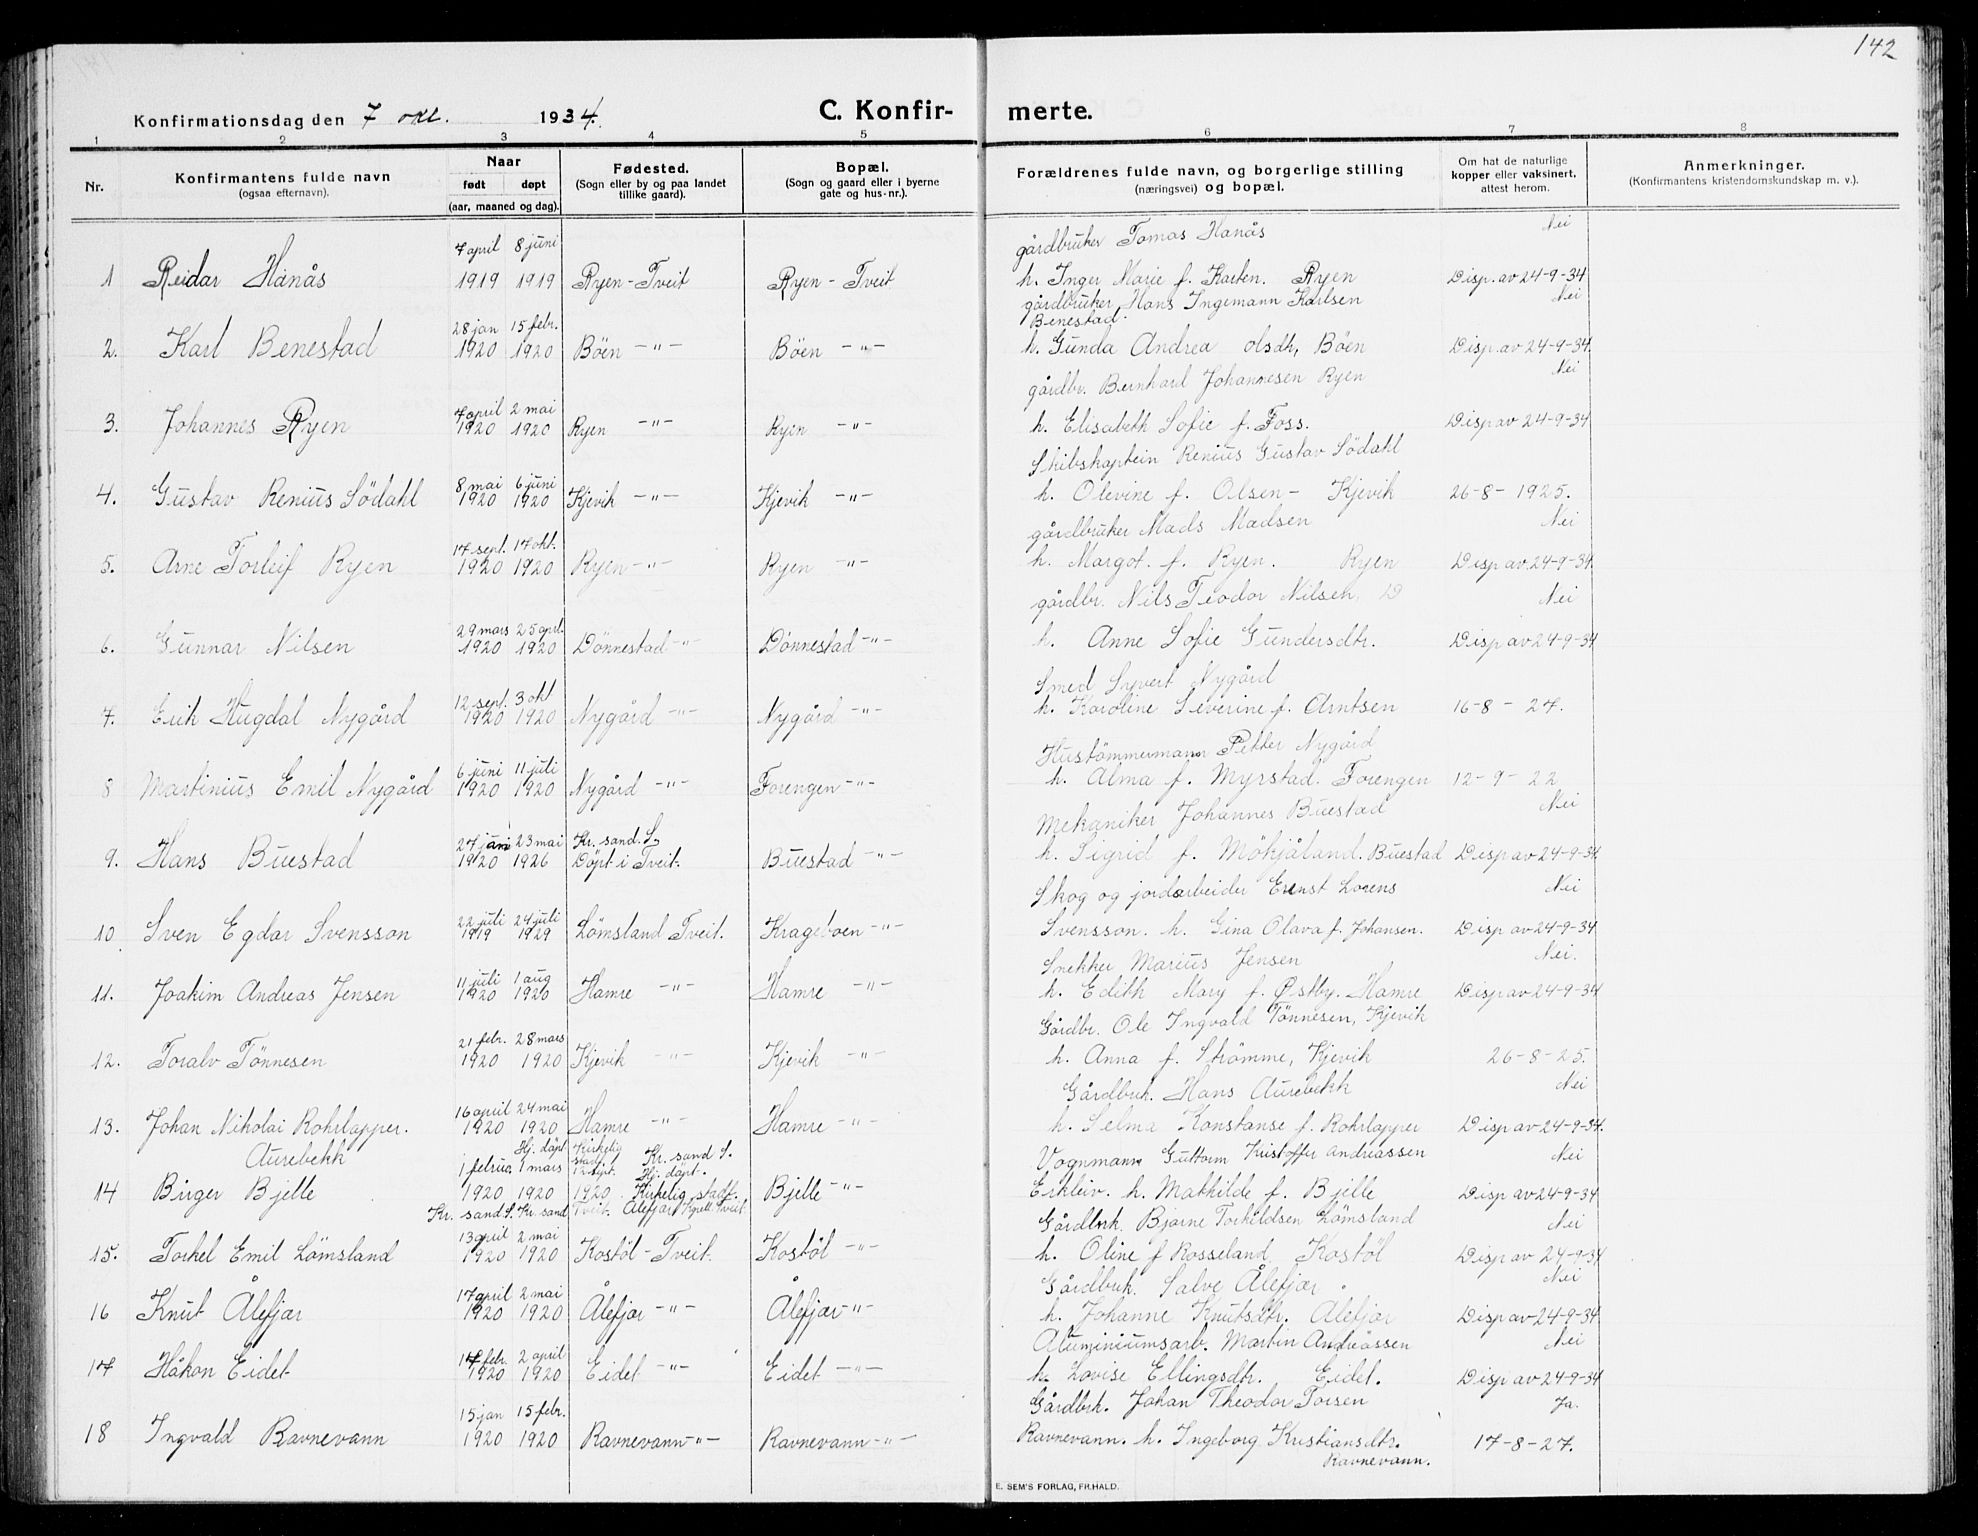 142
Konfirmationsdag den 7 okt. 1934.
C. Konfir-
merte.
1 2 3 4 5 6 7 8
Nr.
Konfirmantens fulde navn
(ogsaa efternavn).
Naar
født døpt
(aar, maaned og dag).
Fødested.
(Sogn eller by og paa landet
tillike gaard).
Bopæl.
(Sogn og gaard eller i byerne
gate og hus-nr.).
Forældrenes fulde navn, og borgerlige stilling
(næringsvei) og bopæl.
Om hat de naturlige
kopper eller vaksinert,
attest herom.
Anmerkninger.
(Konfirmantens kristendomskundskap m. v.).
7 april 8 juni gårdbruker Tomas Hanås Nei
1 Reidar Hanås 1919 1919 Ryen - Tveit Ryen - Tveit h. Inger Marie f. Karten. Ryen Disp. av 24-9-34
28 jan 15 febr. gårdbruker Hans Ingemann Karlsen Nei
Benestad.
2. Karl Benestad 1920 1920 Böen -"- Böen -"- h. Gunda Andrea olsdtr, Böen Disp. av 24-9-34.
7 april 2 mai gårdbr. Bernhard Johannesen Ryen Nei
3. Johannes Ryen 1920 1920 Ryen -"- Ryen -"- h. Elisabeth Sofie f. Foss. Disp av 24-9-34
8 mai 6 juni Skibskaptein Renius Gustav Södahl
4. Gustav Renius Södahl 1920 1920 Kjevik -"- Kjevik -"- h. Olevine f. Olsen - Kjevik 26-8-1925.
17 sept. 17 okt. gårdbruker Mads Madsen Nei
5. Arne Torleif Ryen 1920 1920 Ryen -"- Ryen -"- h. Margot. f. Ryen. Ryen Disp av 24-9-34
29 mars 25 aprl. gårdbr. Nils Teodor Nilsen. D Nei
6. Gunnar Nilsen 1920 1920 Dönnestad -"- Dönnestad -"- h. Anne Sofie Gundersdtr. Disp av 24-9-34
12 sept. 3 okt Smed Syvert Nygård
7. Erik Hugdal Nygård 1920 1920 Nygård -"- Nygård -"- h. Karoline Severine f. Arntsen 16-8-27.
6 juni 11 juli Hustömmermann Petter Nygård
8 Martinius Emil Nygård 1920 1920 Nygård -"- Forengen -"- h. Alma f. Myrstad. Forengen 12-9-22
27 juni 23 mai Kr. sand. S. Mekaniker Johannes Buestad Nei
9. Hans Buestad 1920 1926 Döpt i Tveit. Buestad -"- h. Sigrid f. Mökjåland. Buestad Disp av 24-9-34.
22 juli 24 juli Skog og jordarbeider Ernst Lorens Nei
10 Sven Egdar Svensson 1919 1929 Lömsland Tveit. Krageboen -"- Svensson. h. Gina Olava f. Johansen. Disp av 24-9-34
11 juli 1 aug Snekker Marius Jensen Nei.
11. Joakim Andreas Jensen 1920 1920 Hamre -"- Hamre -"- h. Edith Mary f. Østby. Hamre Disp av 24-9-34
21 febr. 28 mars Gårdbr. Ole Ingvald Tönnesen, Kjevik
12. Toralv Tönnesen 1920 1920 Kjevik -"- Kjevik -"- h. Anna f. Strömme, Kjevik 26-8-25.
16 april 24 mai Gårdbruk. Hans Aurebekk Nei
13. Johan Nikolai Rohrlapper. 1920 1920 Hamre -"- Hamre -"- h. Selma Konstanse f. Rohrlapper Disp av 24-9-34.
Aurebekk
Hj. döpt Kirkelig Kr. sand S.
1 februa. 1 mars Hj. döpt. Vognmann Guttorm Kristoffer Andreassen Nei
14 Birger Bjelle 1920 1920 1920. Kirkelig stadf. Bjelle -"- Erkleiv. h. Mathilde f. Bjelle Disp av 24-9-34
Kr. sand S. Kr. sand Tveit. Ålefjær Kapell Tveit.
13 april 2 mai Gårdbrk. Bjarne Torkeldsen Lömsland Nei
15. Torkel Emil Lömsland 1920 1920 Kostöl - Tveit. Kostöl -"- h. Oline f Rosseland Kostöl Disp av 24-9-34
17 april 2 mai Gårdbruk. Salve Ålefjær Nei
16 Knut Ålefjær 1920 1920 Ålefjær -"- Ålefjær -"- h. Johanne Knutsdtr. Ålefjær Disp av 24-9-34
17 febr. 2 april Aluminiumsarb. Martin Andreassen Nei
17 Håkon Eidet 1920 1920 Eidet -"- Eidet -"- h. Lovise Ellingsdtr. Eidet. Disp av 24-9-34
15 jan 15 febr. Gårdbrk. Johan Theodor Torsen Ja.
18 Ingvald Ravnevann 1920 1920 Ravnevann -"- Ravnevann -"- Ravnevann. h. Ingeborg Kristiansdtr. 17-8-27.
Ravnevann.
E. SEM'S FORLAG, FR.HALD.